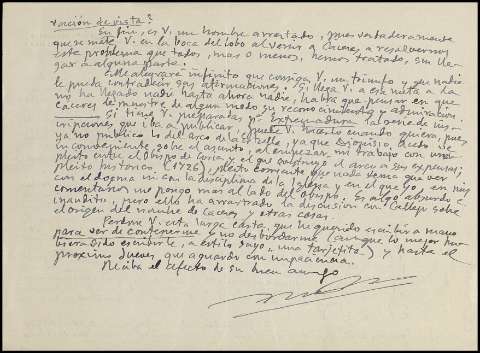 vación de vista?
En fin, es V. un hombre arrestado, pues verdaderamente
que se mete V. en la boca del lobo al venir a Cáceres a resolvernos
este problema que todos, mas o menos, hemos tratado, sin lle-
gar a alguna parte.
Me alegraré infinito que consiga V. un triunfo y que nadie
le pueda contradecir sus afirmaciones. Si llega V. a esa meta a la
no ha llegado nadie hasta ahora nadie, habrá que pensar en que
Cáceres le muestre de algun modo su reconocimiento y admiración.
Si tiene V. preparadas pª Extremadura, al gene de ins-
cripciones que iba a publicar, puede V. hacerlo cuando quiera, pues
ya no publico lo del arco de la Estrella, ya que
inconveniente, sobre el asunto, al empezar mi trabajo con un
pleito entre el Obispo de Coria y el que construyó el arco a sus expensas;
pleito histórico (1726), pleito corriente que nada tiene que ver
con el dogma ni con la disciplina de la Iglesia y en el que yo, en mis
comentarios me pongo más al lado del obispo. Es algo absurdo e
inaudito, pero ello ha arrastrado la discusión con Callejo sobre
el origen del nombre de Cáceres y otras cosas.
Perdone V. esta larga carta, que he querido escribir a mano
para ver de contenerme y no desbordarme (aunque lo mejor hu-
biera sido escribirle, a estilo suyo, "una tarjetita") y hasta el
proximo Jueves que aguardo con impaciencia.
Reciba el afecto de su buen amigo